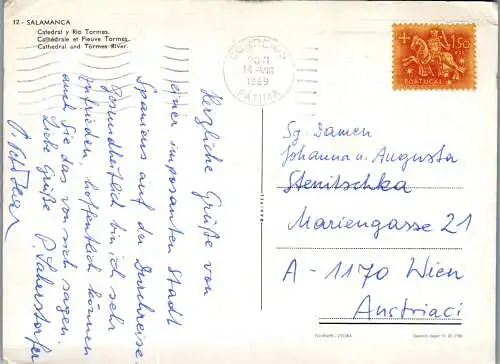 12 - SALAMANCA
Catedral y Rio Tormes.
Cathédrale et Fleuve Tormes.
Cathedral and Tormes River.
CORREIOS
14-VIII
1969
FATIMA
1$50
PORTUGAL
Herzliche Grüße von
einer imposanten Stadt
Spaniens auf der Durchreise.
Gesundheitlich bin ich sehr
zufrieden, hoffentlich können
auch Sie das von sich sagen.
Liebe Grüße P.
Sg. Damen
Johanna u. Augusta
Stenitschka
Mariengasse 21
A - 1170 Wien
Austriaci